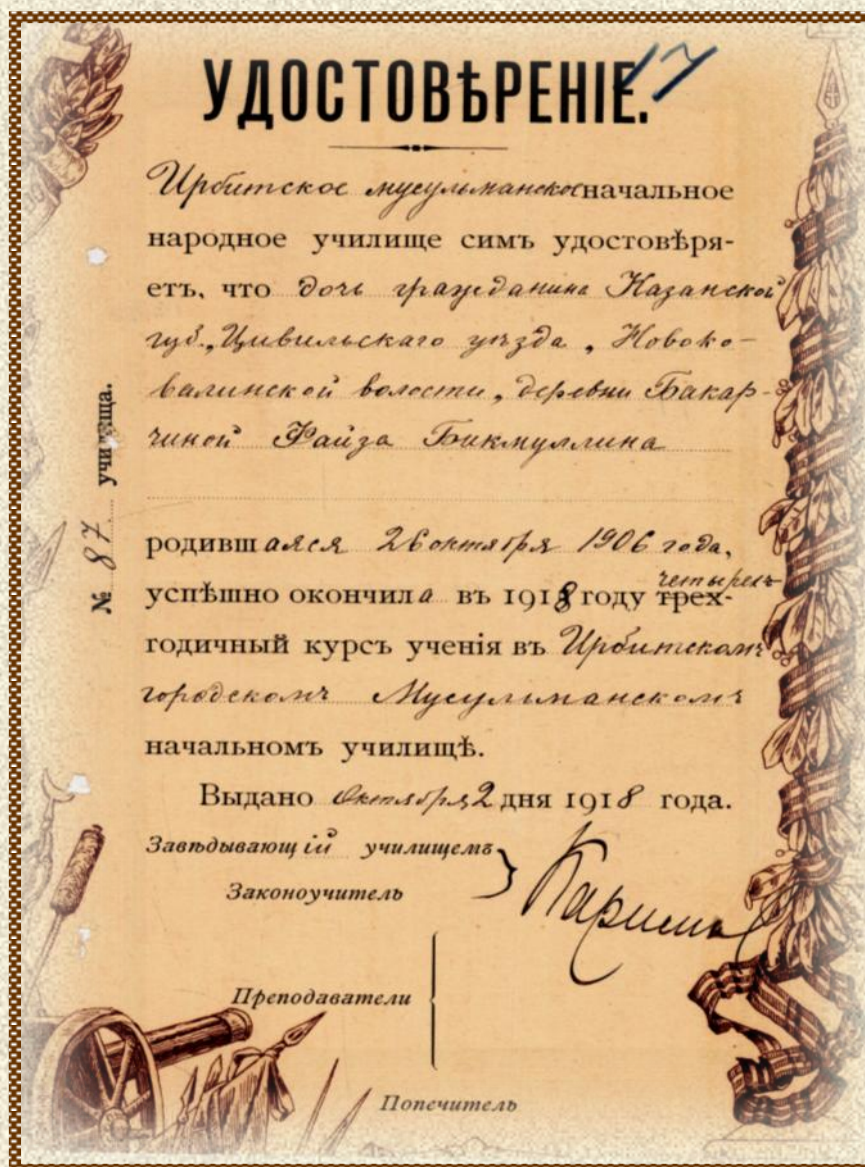 УДОСТОВѢРЕНІЕ. 17
Ирбитское мусульманское начальное
народное училище симъ удостовѣря-
етъ, что дочь гражданина Казанской
губ., Цивильскаго уѣзда, Новоко-
валинской волости, деревни Бакар-
чиной Файза Бикмуллина
родившаяся 26 октября 1906 года,
успѣшно окончила въ 1918 году трех- четырех-
годичный курсъ ученія въ Ирбитскомъ
городскомъ Мусульманскомъ
начальномъ училищѣ.
Выдано Октября 2 дня 1918 года.
Завѣдывающій училищемъ
Законоучитель
Преподаватели
Попечитель
№ 87 училища.